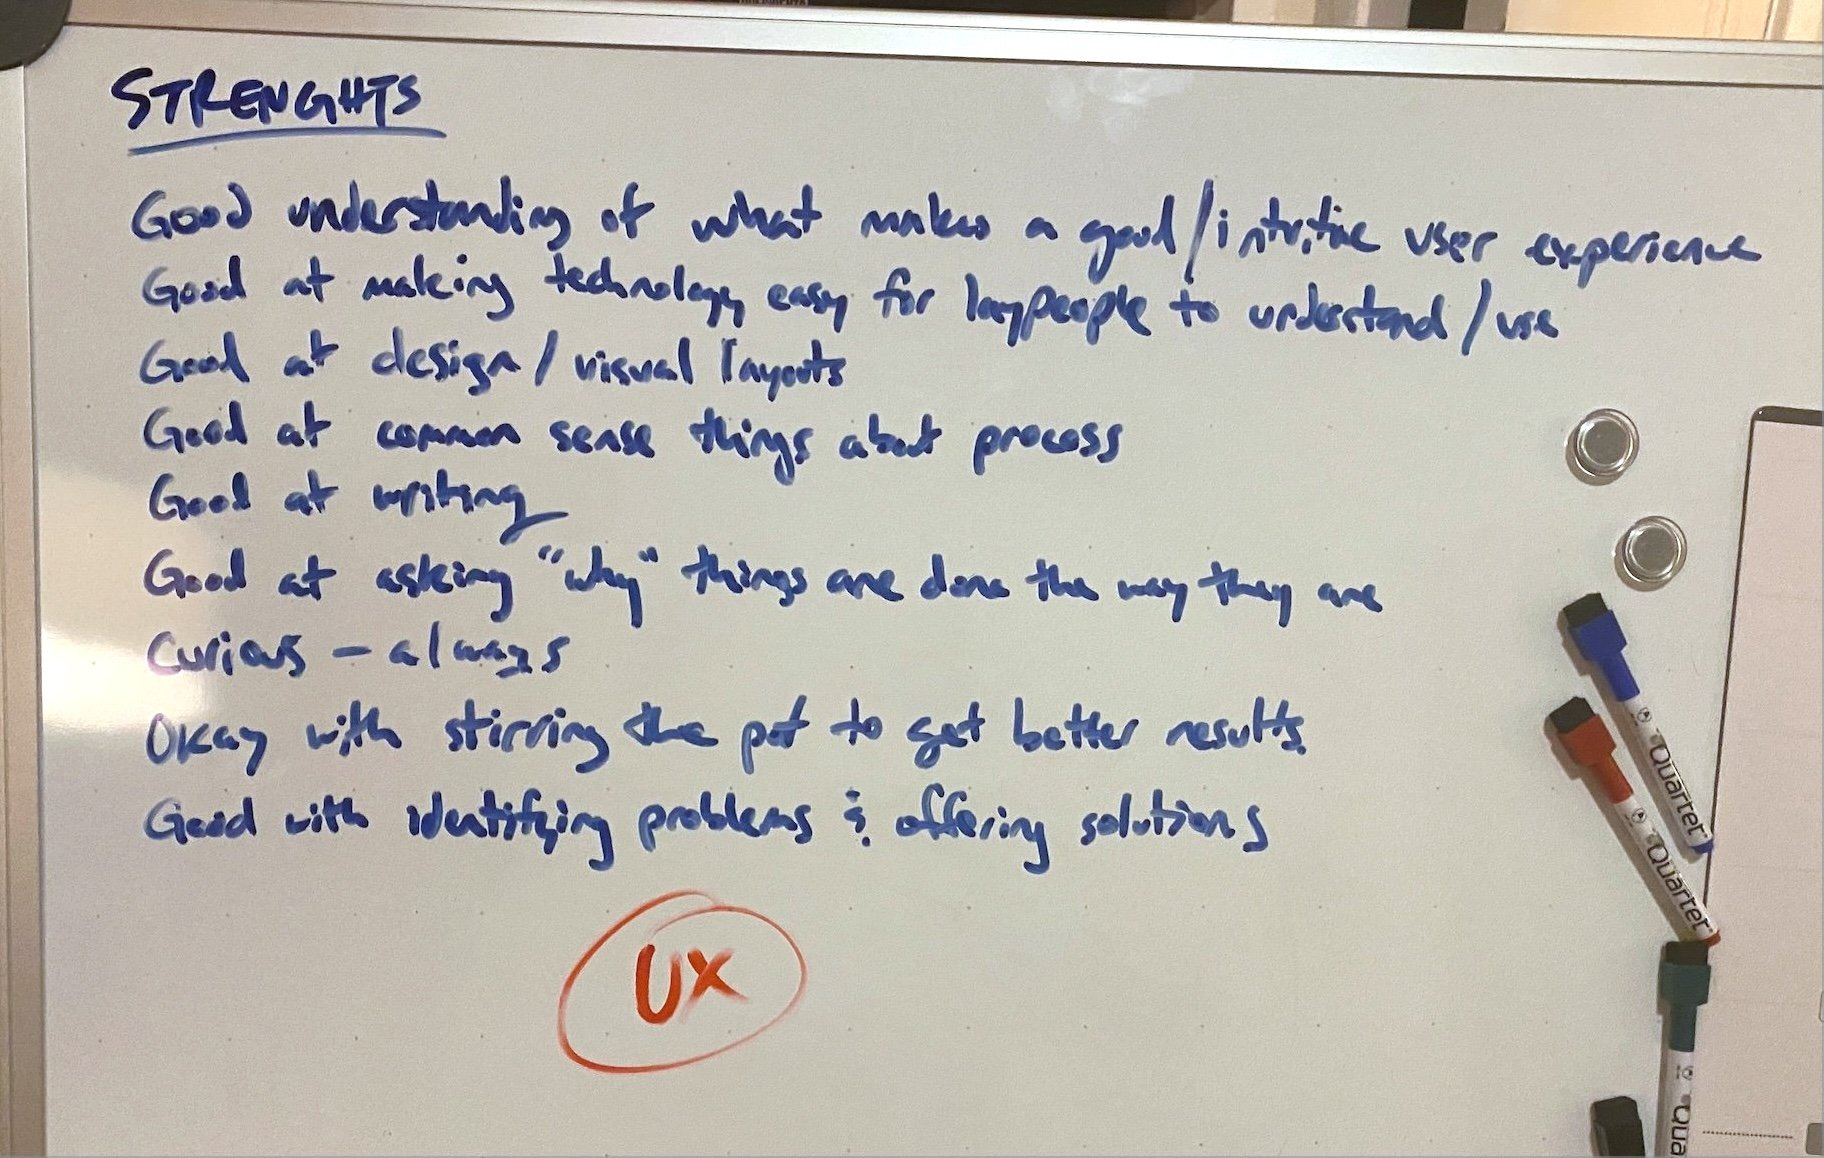 STRENGHTS
Good understanding of what makes a good/intuitive user experience
Good at making technology easy for laypeople to understand/use
Good at design/visual layouts
Good at common sense things about process
Good at writing
Good at asking "why" things are done the way they are
Curious – always
Okay with stirring the pot to get better results.
Good with identifying problems & offering solutions
UX
Quartet
Quartet
Qua